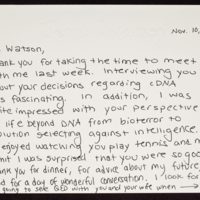 Nov. 10,
Watson,
ank you for taking the time to meet
th me last week. Interviewing you
out your decisions regarding cDNA
s fascinating. In addition, I was
ite impressed with your perspective
life beyond DNA from bioterror to
olution selecting against intelligence.
enjoyed watching you play tennis, and m
mit I was surprised that you were so goo
ank you for dinner, for advice about my future,
d for a day of wonderful conversation. I look for
going to see with you and your wife when